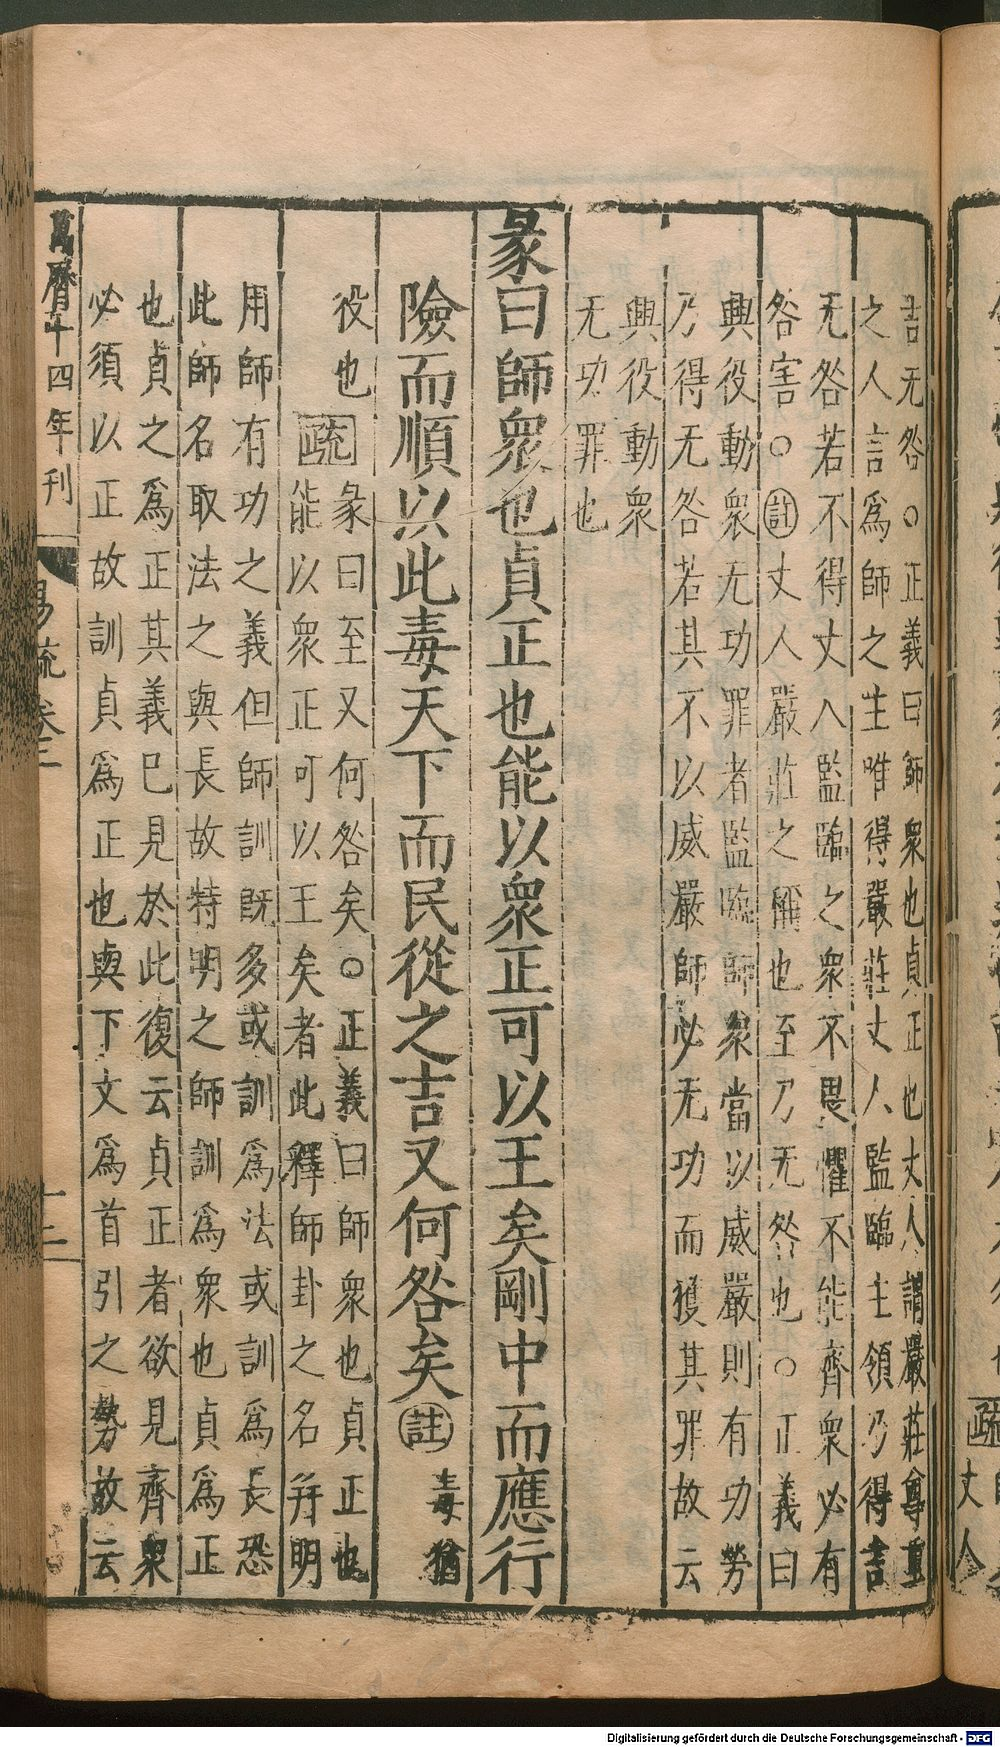 吉无咎○正義曰師衆也貞正也丈人謂嚴莊尊重
之人言爲師之主唯得嚴莊丈人監臨主領乃得吉
无咎若不得丈人監臨之衆不畏懼不能齊衆必有
咎害○註丈人嚴莊之稱也至乃无咎也○正義曰
興役動衆无功罪者監臨師衆當以威嚴則有功勞
乃得无咎若其不以威嚴師必无功而獲其罪故云
興役動衆
无功罪也
彖曰師衆也貞正也能以衆正可以王矣剛中而應行
險而順以此毒天下而民從之吉又何咎矣註毒猶
役也疏彖曰至又何咎矣○正義曰師衆也貞正也
能以衆正可以王矣者此釋師卦之名并明
用師有功之義但師訓既多或訓爲法或訓爲長恐
此師名取法之與長故特明之師訓爲衆也貞爲正
也貞之爲正其義已見於此復云貞正者欲見齊衆
必須以正故訓貞爲正也與下文爲首引之勢故云
萬曆十四年刊
易疏卷二
十二
疏
丈人
Digitalisierung gefördert durch die Deutsche Forschungsgemeinschaft - DFG